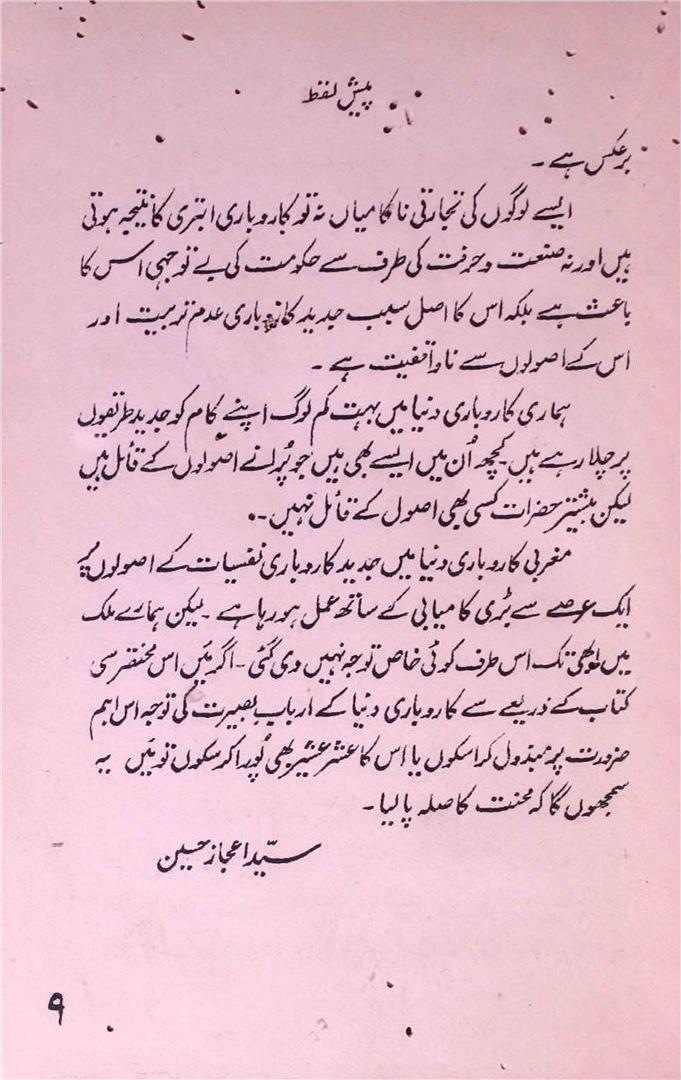 پیش لفظ
برعکس ہے ۔
ایسے لوگوں کی تجارتی ناکامیاں نہ تو کاروباری ابتری کا نتیجہ ہوتی
ہیں اور نہ صنعت و حرفت کی طرف سے حکومت کی بے توجہی اس کا
باعث ہے بلکہ اس کا اصل سبب جدید کاروباری عدم تربیت اور
اس کے اصولوں سے ناواقفیت ہے ۔
ہماری کاروباری دنیا میں بہت کم لوگ اپنے کام کو جدید طریقوں
پر چلا رہے ہیں ۔ کچھ اُن میں ایسے بھی ہیں جو پُرانے اصولوں کے قائل ہیں
لیکن بیشتر حضرات کسی بھی اصول کے قائل نہیں ۔
مغربی کاروباری دنیا میں جدید کاروباری نفسیات کے اصولوں پر
ایک عرصے سے بڑی کامیابی کے ساتھ عمل ہو رہا ہے ۔ لیکن ہمارے ملک
میں ابھی تک اس طرف کوئی خاص توجہ نہیں دی گئی ۔ اگر میں اس مختصر سی
کتاب کے ذریعے سے کاروباری دنیا کے ارباب بصیرت کی توجہ اس اہم
ضرورت پر مبذول کرا سکوں یا اس کا عشر عشیر بھی پُورا کر سکوں تو میں یہ
سمجھوں گا کہ محنت کا صلہ پا لیا ۔
سیّد اعجاز حسین
۹